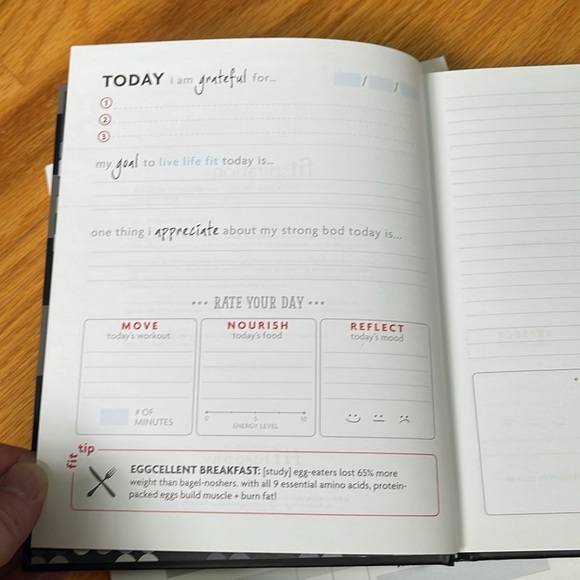 TODAY i am grateful for...
/ /
1
2
3
my goal to live life fit today is...
one thing i appreciate about my strong bod today is...
••• RATE YOUR DAY •••
MOVE
today's workout
# OF
MINUTES
NOURISH
today's food
0 5 10
ENERGY LEVEL
REFLECT
today's mood
fit tip
EGGCELLENT BREAKFAST: [study] egg-eaters lost 65% more
weight than bagel-noshers. with all 9 essential amino acids, protein-
packed eggs build muscle + burn fat!